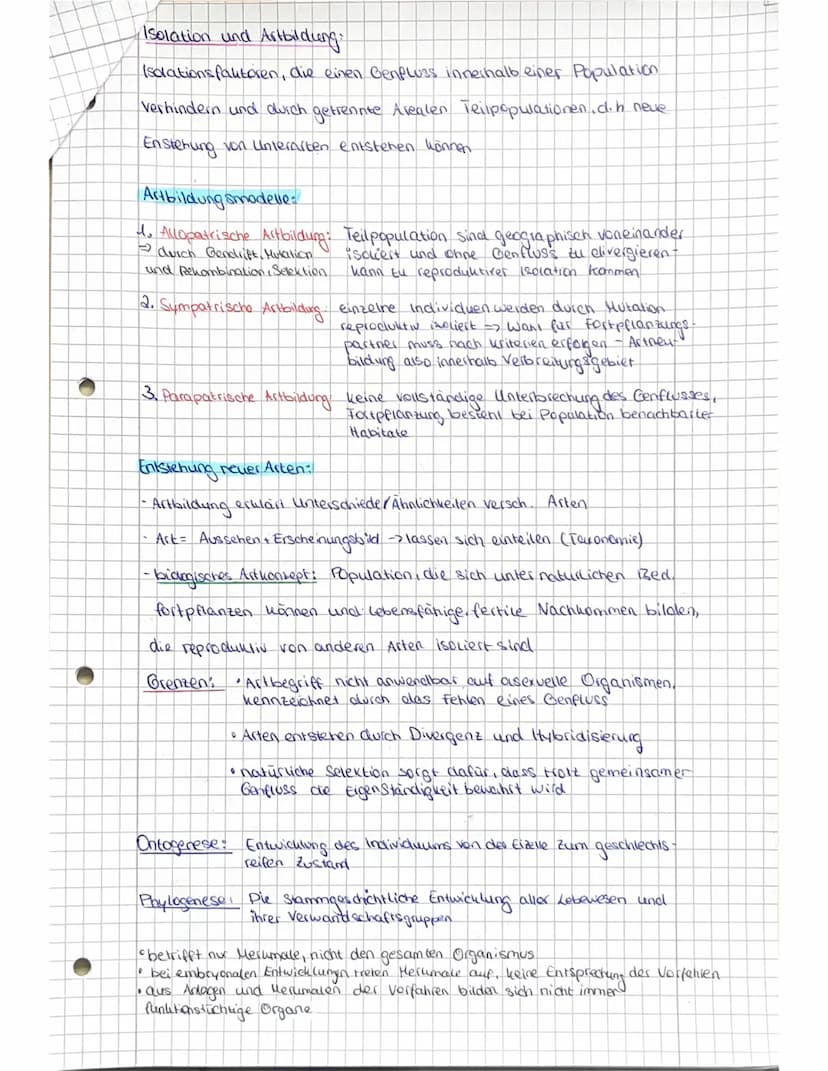 Isolation und Artbildung:
Isolationsfaktoren, die einen Genfluss innerhalb einer Population
verhindern und durch getrennte Arealen Teilpopulationen, d.h neue
Enstehung von Unterarten entstehen können
Artbildungsmodelle:
1. Allopatrische Artbildung: Teilpopulation sind geographisch voneinander
⇒ durch Gendrift, Mutation isoliert und ohne Genfluss zu divergieren -
und Rekombination, Selektion kann zu reproduktiver Isolation kommen
2. Sympatrische Artbildung: einzelne Individuen werden durch Mutation
reproduktiv isoliert => Wahl für Fortpflanzungs-
partner muss nach Kriterien erfolgen - Artneu-
bildung also innerhalb Verbreitungsgebiet
3. Parapatrische Artbildung keine vollständige Unterbrechung des Genflusses,
Fortpflanzung besteht bei Population benachbarter
Habitate
Entstehung neuer Arten:
- Artbildung erklärt Unterschiede/Ähnlichkeiten versch. Arten
- Art = Aussehen + Erscheinungsbild -> lassen sich einteilen (Taxonomie)
- biologisches Artkonzept: Population, die sich unter natürlichen Bed.
fortpflanzen können und lebensfähige, fertile Nachkommen bilden,
die reproduktiv von anderen Arten isoliert sind
Grenzen: • Artbegriff nicht anwendbar auf asexuelle Organismen,
kennzeichnet durch das Fehlen eines Genfluss
• Arten entstehen durch Divergenz und Hybridisierung
• natürliche Selektion sorgt dafür, dass trotz gemeinsamer
Genfluss die Eigenständigkeit bewahrt wird
Ontogenese: Entwicklung des Individuums von der Eizelle zum geschlechts-
reifen Zustand
Phylogenese: Die stammgeschichtliche Entwicklung aller Lebewesen und
ihrer Verwandschaftsgruppen
• betrifft nur Merkmale, nicht den gesamten Organismus
• bei embryonalen Entwicklungn treten Merkmale auf, keine Entsprechung der Vorfahren
• aus Anlagen und Merkmalen der Vorfahren bilden sich nicht immer
funktionstüchtige Organe